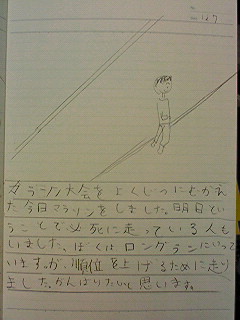 マラソン大会をよくじつにむかえ
た今日マラソンをしました。明日とい
うことで必死に走っている人も
いました。ぼくはロングランにいって
いますが、順位を上げるために走り
ました。がんばりたいと思います。